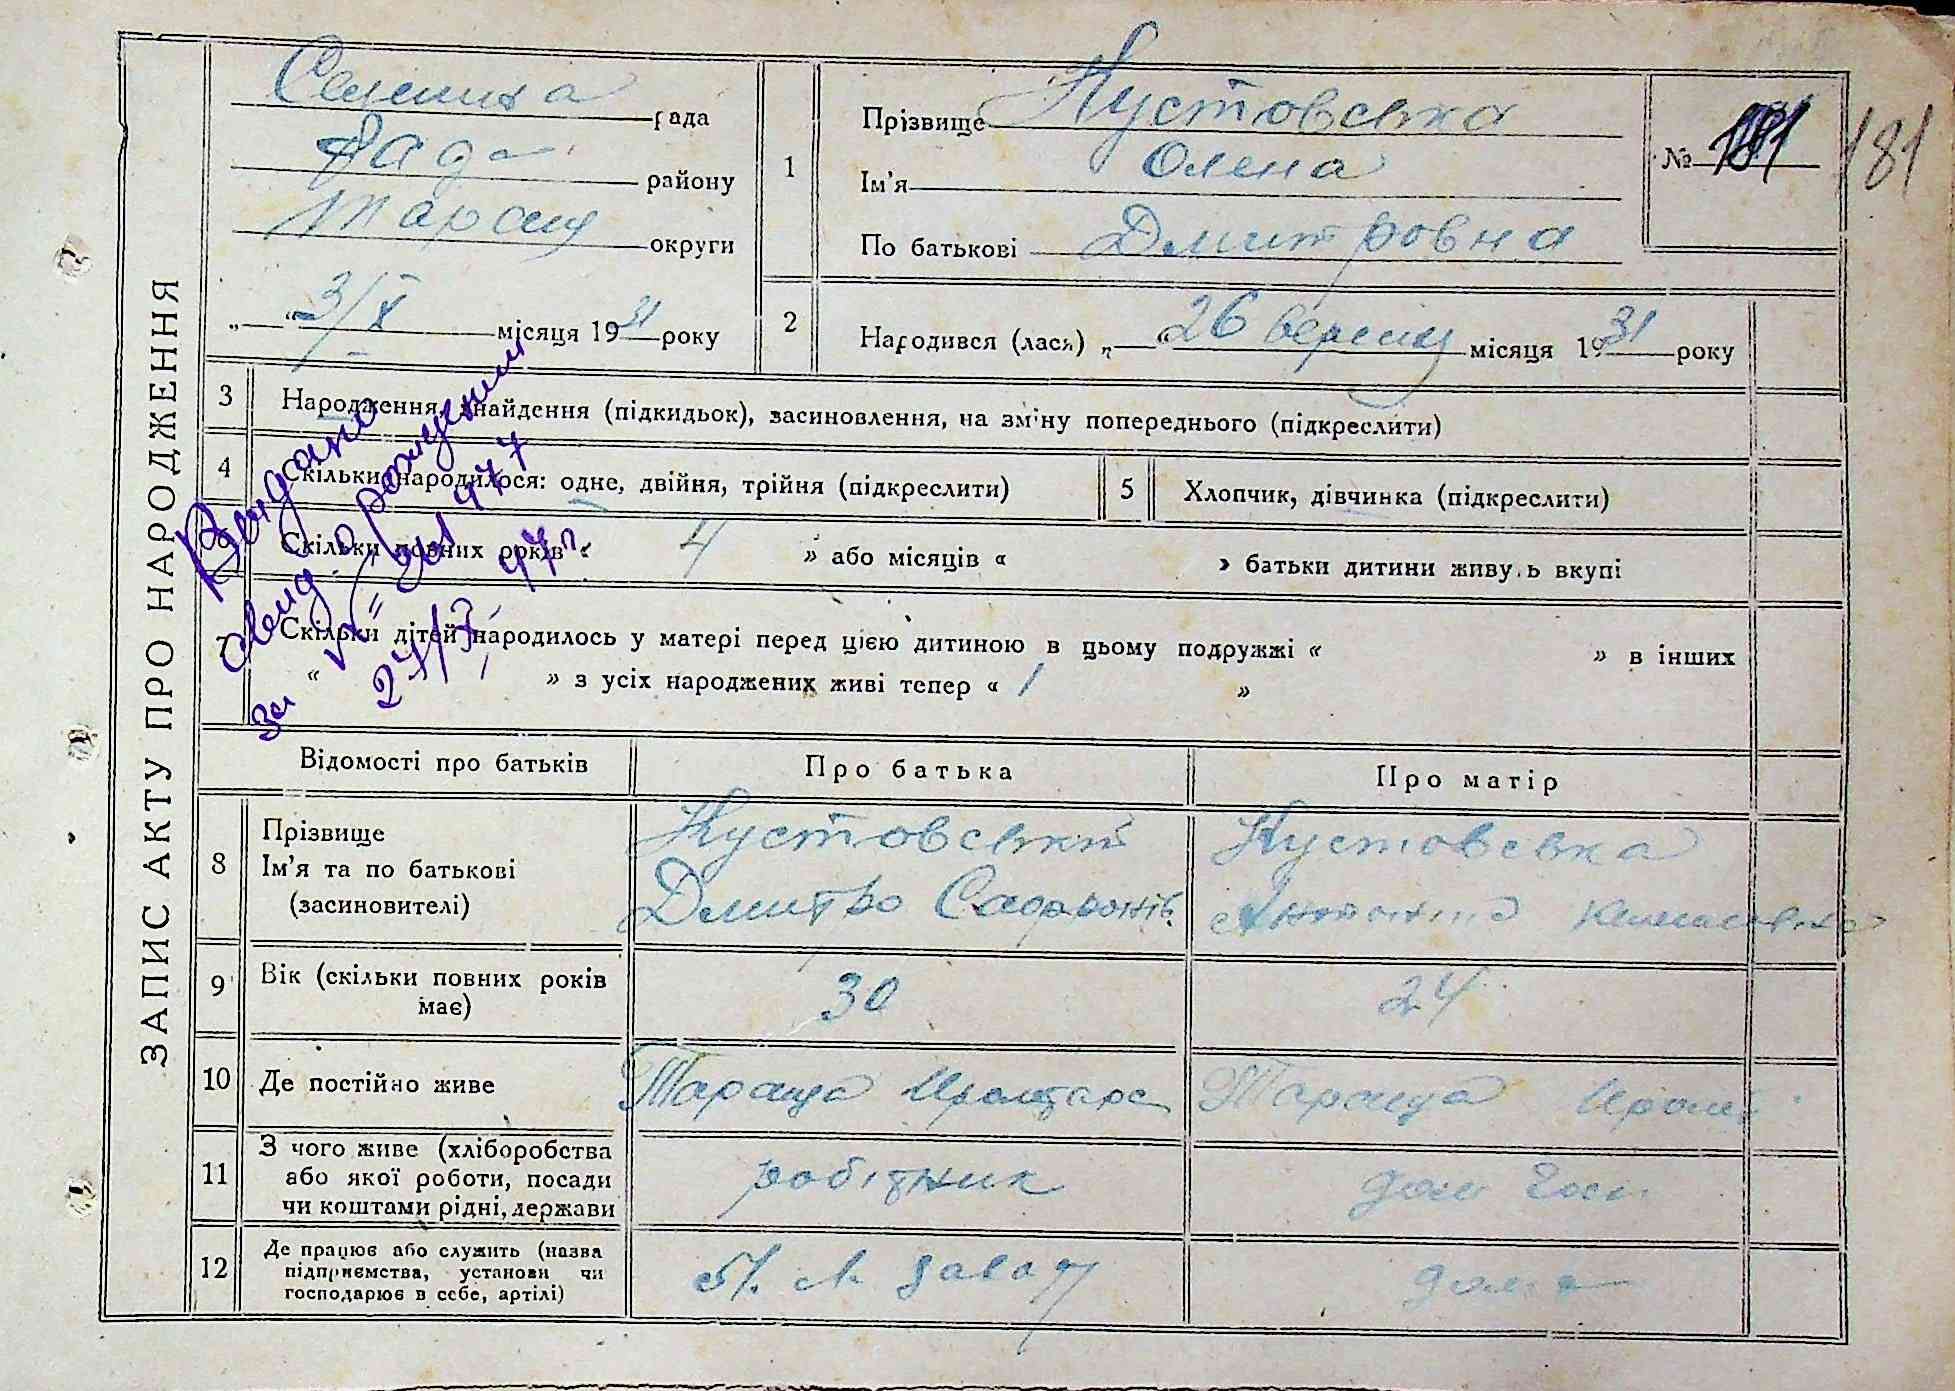 ЗАПИС АКТУ ПРО НАРОДЖЕННЯ
Селищна рада
району
Таращ округи
„ “ 3/X місяця 1931 року
1
Прізвище Кустовська
Ім'я Олена
По батькові Дмитровна
№ 181
181
2
Народився (лася) „ “ 26 вересня місяця 1931 року
3
Народження, знайдення (підкидьок), засиновлення, на зміну попереднього (підкреслити)
4
Скільки народилося: одне, двійня, трійня (підкреслити)
5
Хлопчик, дівчинка (підкреслити)
6
Скільки повних років « 4 » або місяців « » батьки дитини живуть вкупі
7
Скільки дітей народилось у матері перед цією дитиною в цьому подружжі « » в інших
« » з усіх народжених живі тепер « 1 »
Выдано
свид. о рождении
за
27/X
Відомості про батьків
Про батька
Про матір
8
Прізвище
Ім'я та по батькові
(засиновителі)
Кустовський
Дмитро Сафронів.
Кустовська
Антоніна
9
Вік (скільки повних років
має)
30
24
10
Де постійно живе
Тараща
Тараща
11
З чого живе (хліборобства
або якої роботи, посади
чи коштами рідні, держави
робітник
дом госп.
12
Де працює або служить (назва
підприємства, установи чи
господарює в себе, артілі)
завод
дома